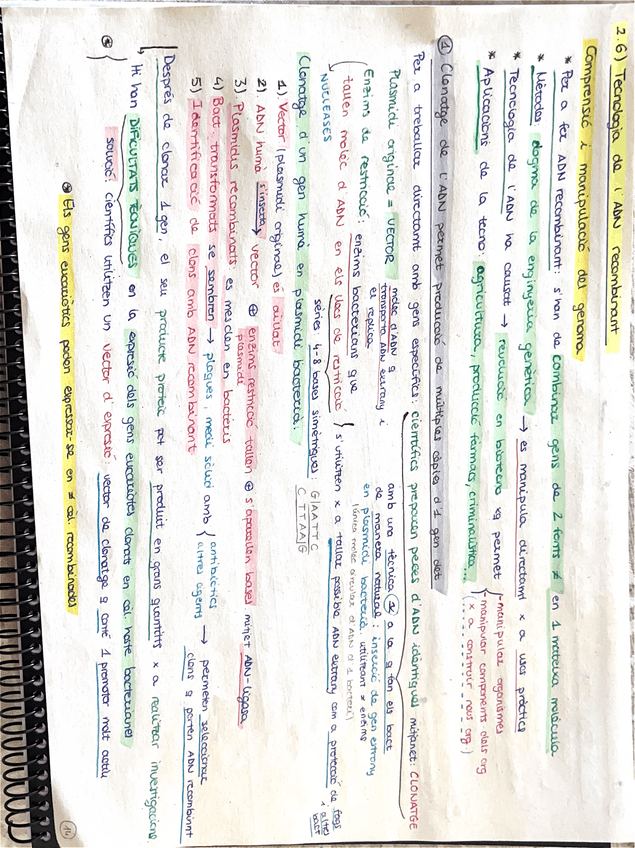 2.6) Tecnologia de l'ADN recombinant
Comprensió i manipulació del genoma
* Per a fer ADN recombinant: s'han de combinar gens de 2 fonts ≠ en 1 mateixa molècula
* Mètodes dogma de la enginyeria genètica → es manipula directament x a usos pràctics
* Tecnologia de l'ADN ha causat → revolució en biotecno xq permet { - manipular organismes
- manipular components dels org
( x a construir nous org )
* Aplicacions de la tecno: agricultura, producció fàrmacs, criminalística...
① Clonatge de l'ADN permet producció de múltiples còpies d'1 gen det
Per a treballar directament amb gens específics: científics preparen peces d'ADN idèntiques mitjançant: CLONATGE
amb una tècnica (*) a la q fan els bact
de manera natural: inserció de gen estrany
en plasmidi bacterià utilitzant ≠ enzims
(única molèc circular d'ADN d'1 bacteri)
Plasmidi originale = VECTOR molèc d'ADN q
transporta ADN estrany i
el replica
Enzims de restricció: enzims bacterians que
tallen molèc d'ADN en els llocs de restricció } s'utilitzen x a tallar possible ADN estrany com a protecció de fags
i altres
bact
NUCLEASES
sèries 4-8 bases simètriques: G|AATTC
CTTAA|G
Clonatge d'un gen humà en plasmidi bacterià:
1) Vector (plasmidi originale) és aïllat
2) ADN humà s'inserta → vector ⊕ enzims restricció tallen ⊕ s'aparellen bases mitjet ADN-ligasa
plasmidi
3) Plasmidis recombinats: es mesclen en bacteris
4) Bact. transformats se sembren → plaques, medi sòlid amb { antibiòtics
altres agents → permeten seleccionar
clons q porten ADN recombinnt
5) Identificació de clons amb ADN recombinant
Després de clonar 1 gen, el seu producte proteic pot ser produït en grans quantitats x a realitzar investigacions
Hi han DIFICULTATS TÈCNIQUES en la expresió dels gens eucariotes clonats en cèl. hoste bacterianes
* { solució: científics utilitzen un vector d'expresió: vector de clonatge q conté 1 promotor molt actiu
* Els gens eucariòtics poden expressar-se en ≠ cèl. recombinades
14